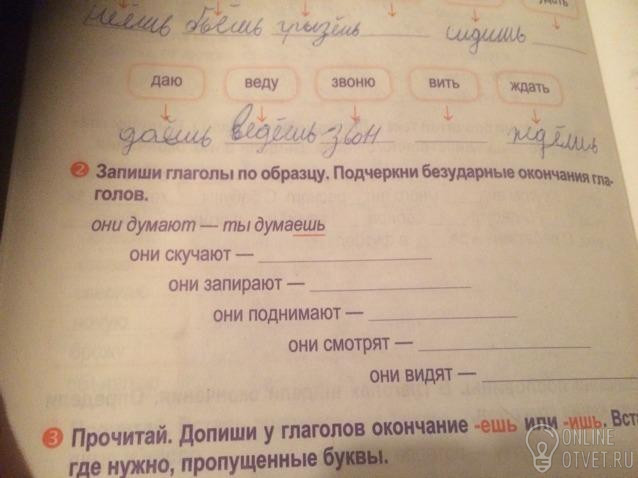 пьёшь бьёшь грызёшь сидишь
даю веду звоню вить ждать
даёшь ведёшь звон ждёшь
2 Запиши глаголы по образцу. Подчеркни безударные окончания гла-
голов.
они думают — ты думаешь
они скучают —
они запирают —
они поднимают —
они смотрят —
они видят —
3 Прочитай. Допиши у глаголов окончание -ешь или -ишь. Вст
где нужно, пропущенные буквы.
ONLINE
OTVET.RU